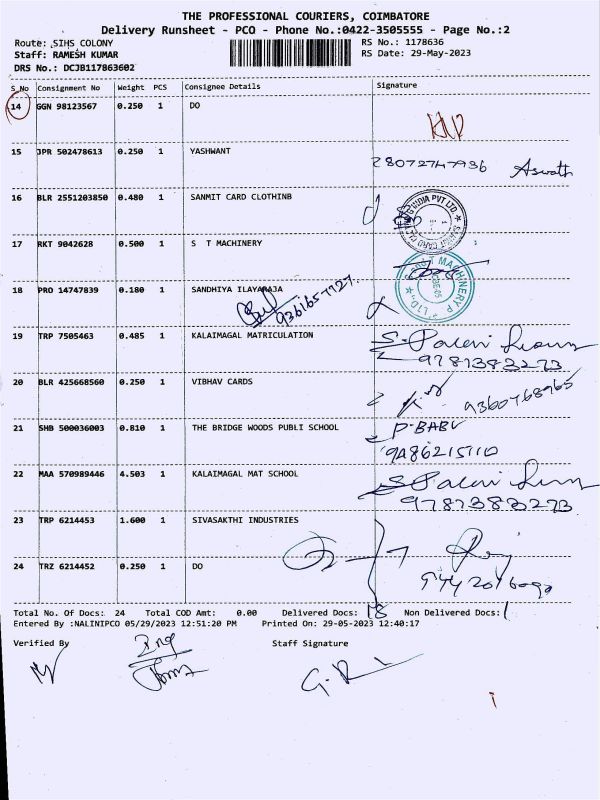 THE PROFESSIONAL COURIERS, COIMBATORE
Delivery Runsheet - PCO - Phone No.:0422-3505555 - Page No.:2
Route: SIHS COLONY RS No.: 1178636
Staff: RAMESH KUMAR RS Date: 29-May-2023
DRS No.: DCJB117863602
S_No Consignment No Weight PCS Consignee Details Signature
14 GGN 98123567 0.250 1 DO
15 JPR 502478613 0.250 1 YASHWANT Aswath
16 BLR 2551203850 0.480 1 SANMIT CARD CLOTHINB
17 RKT 9042628 0.500 1 S T MACHINERY
18 PRO 14747839 0.180 1 SANDHIYA ILAYARAJA 9361657727
19 TRP 7505463 0.485 1 KALAIMAGAL MATRICULATION
9787383273
20 BLR 425668560 0.250 1 VIBHAV CARDS 9360768965
21 SHB 500036003 0.810 1 THE BRIDGE WOODS PUBLI SCHOOL P. BABU
9A86215110
22 MAA 570989446 4.503 1 KALAIMAGAL MAT SCHOOL
9787383273
23 TRP 6214453 1.600 1 SIVASAKTHI INDUSTRIES
24 TRZ 6214452 0.250 1 DO
Total No. Of Docs: 24 Total COD Amt: 0.00 Delivered Docs: 18 Non Delivered Docs: 1
Entered By :NALINIPCO 05/29/2023 12:51:20 PM Printed On: 29-05-2023 12:40:17
Verified By Staff Signature